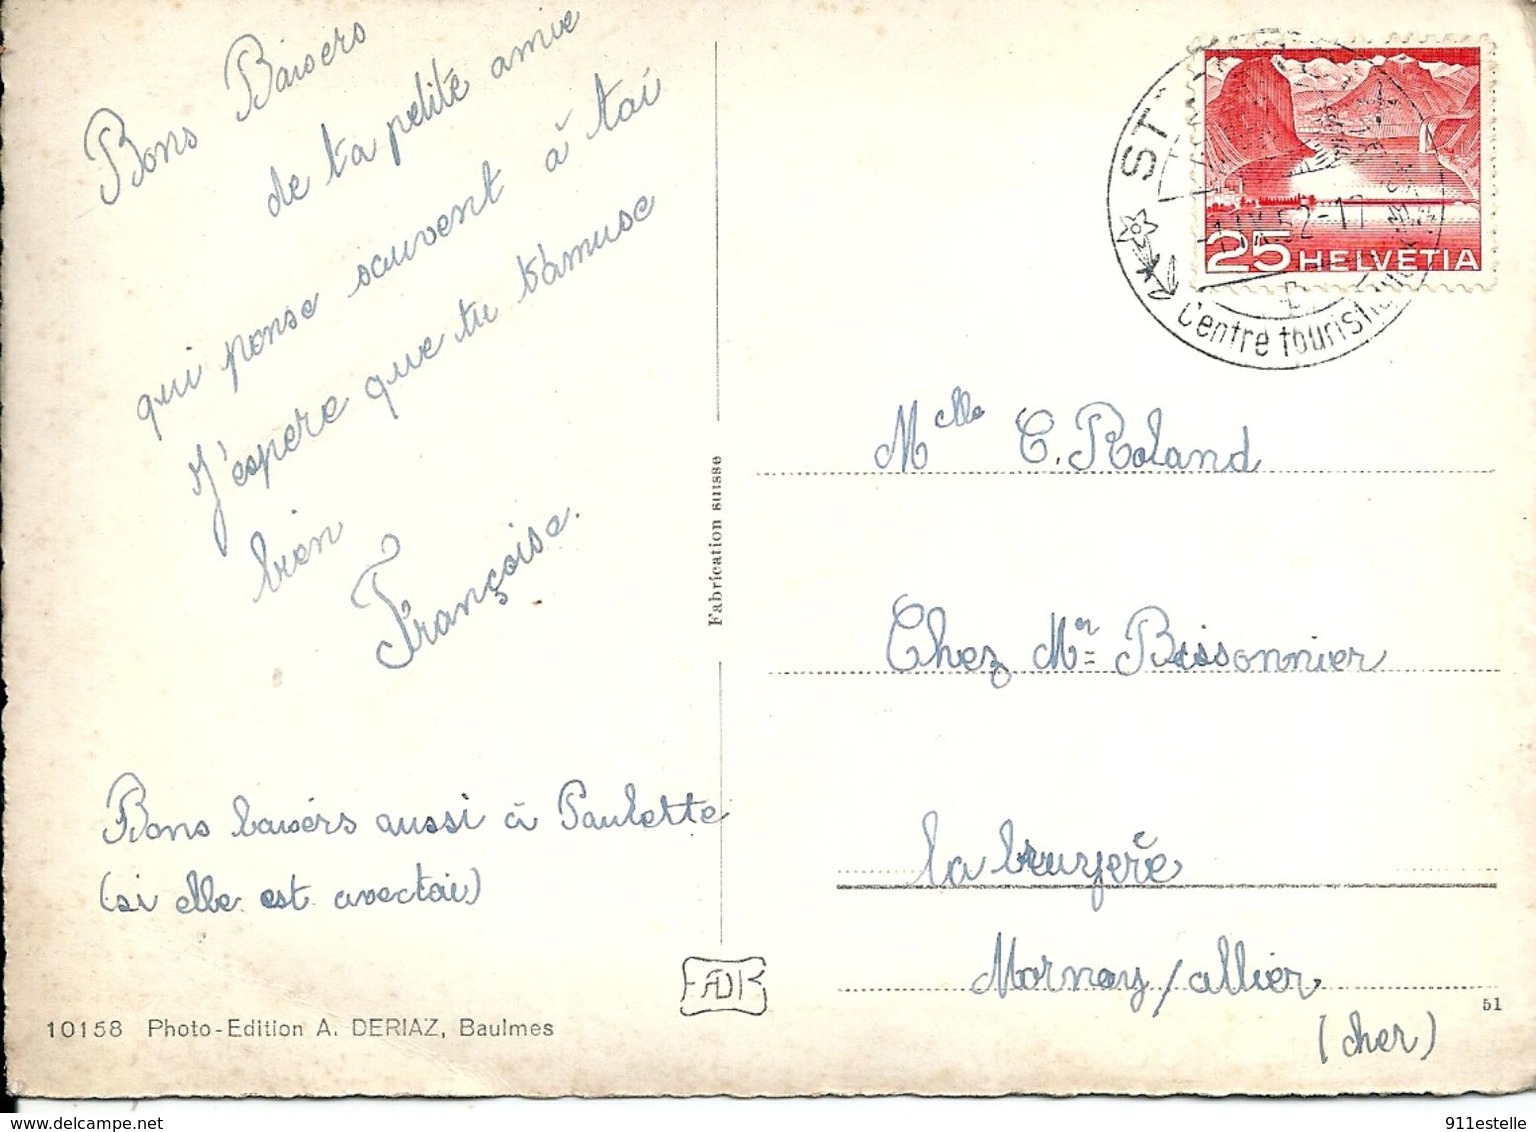 Bons Baisers
de ta petite amie
qui pense souvent à toi
J'espere que tu t'amuse
bien
Françoise.
Bons baisers aussi à Paulette
(si elle est avectoi)
10158 Photo-Edition A. DERIAZ, Baulmes
Fabrication suisse
25 HELVETIA
52-17
Centre touristique
Melle C. Roland
Chez Mr Bissonnier
la bruyère
Mornay/allier
(cher)
51
911estelle